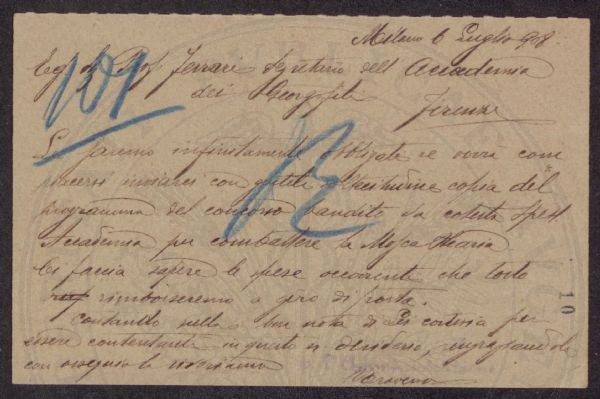 Milano 6 Luglio 908.
Egr. Sig. Prof. Ferrari Segretario dell Accademia
dei Georgofili
Firenze
101
Le saremo infinitamente obbligati se vorrà com
piacersi inviarci con gentile sollecitudine copia del
programma del concorso bandito da codesta Spett.
Accademia per combattere la Mosca Olearia
Ci faccia sapere le spese occorrenti che tosto
rimborseremo a giro di posta.
Contando sulla ben nota di Lei cortesia per
essere contentati in quanto si desidera, ringraziandola
con ossequio la riveriamo
10